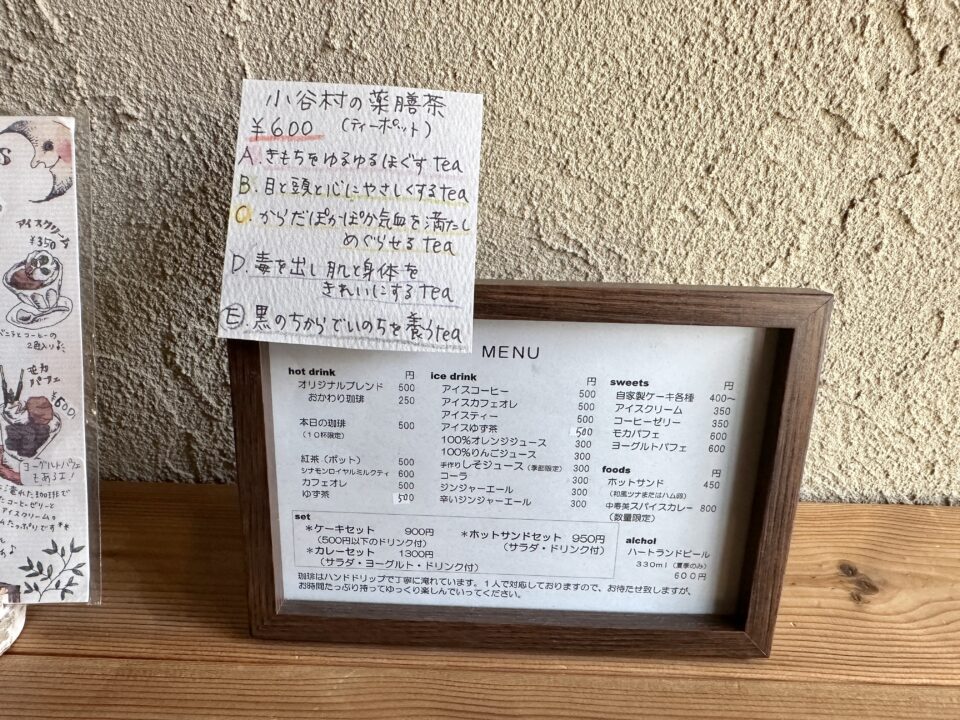 小谷村の薬膳茶
¥600 (ティーポット)
A.きもちをゆるゆるほぐすtea
B.目と頭と心にやさしくするtea
C.からだぽかぽか気血を満たし
めぐらせるtea
D.毒を出し肌と身体を
きれいにするtea
E.黒のちからでいのちを養うtea
アイスクリーム
¥350
2色入り
モカ
パフェ
¥600
ヨーグルトパフェ
もあるよ!
コーヒーゼリーと
アイスクリーム。
MENU
hot drink 円
オリジナルブレンド 500
おかわり珈琲 250
本日の珈琲 500
(10杯限定)
紅茶(ポット) 500
シナモンロイヤルミルクティ 600
カフェオレ 500
ゆず茶 500
ice drink 円
アイスコーヒー 500
アイスカフェオレ 500
アイスティー 500
アイスゆず茶 500
100%オレンジジュース 300
100%りんごジュース 300
手作りしそジュース(季節限定) 300
コーラ 300
ジンジャーエール 300
辛いジンジャーエール 300
sweets 円
自家製ケーキ各種 400〜
アイスクリーム 350
コーヒーゼリー 350
モカパフェ 600
ヨーグルトパフェ 600
foods 円
ホットサンド 450
(和風ツナまたはハム卵)
中寿美スパイスカレー 800
(数量限定)
set
*ケーキセット 900円
(500円以下のドリンク付)
*カレーセット 1300円
(サラダ・ヨーグルト・ドリンク付)
*ホットサンドセット 950円
(サラダ・ドリンク付)
alchol
ハートランドビール
330ml(夏季のみ)
600円
珈琲はハンドドリップで丁寧に淹れています。1人で対応しておりますので、お待たせ致しますが、
お時間たっぷり持ってゆっくり楽しんでいってください。